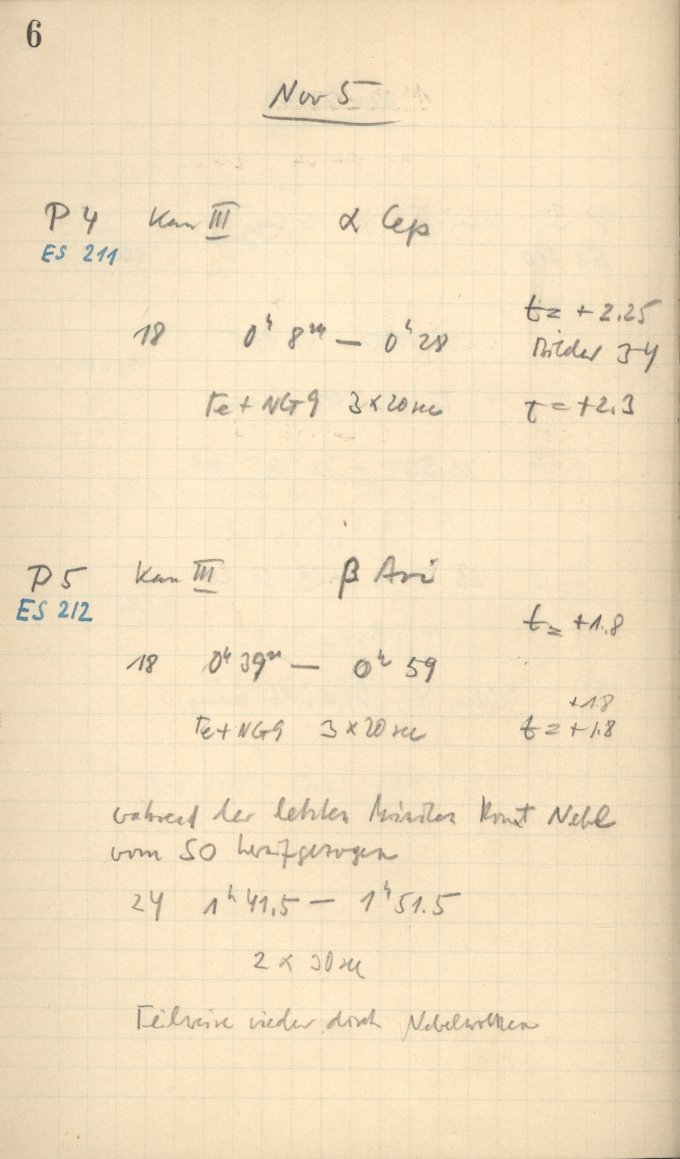 6
Nov 5
P 4 Kam III α Cep
ES 211
t = + 2.25
18 0h 8m — 0h 28
Bilder 3-4
Fe + NG9 3 x 20 sec t = + 2.3
P 5 Kam III β Ari
ES 212
t = + 1.8
18 0h 39m — 0h 59
+ 1.8
Fe + NG9 3 x 20 sec t = + 1.8
während der letzten Minuten kommt Nebel
vom SO heraufgezogen
24 1h 41,5 — 1h 51.5
2 x 30 sec
Teilweise wieder durch Nebelwolken